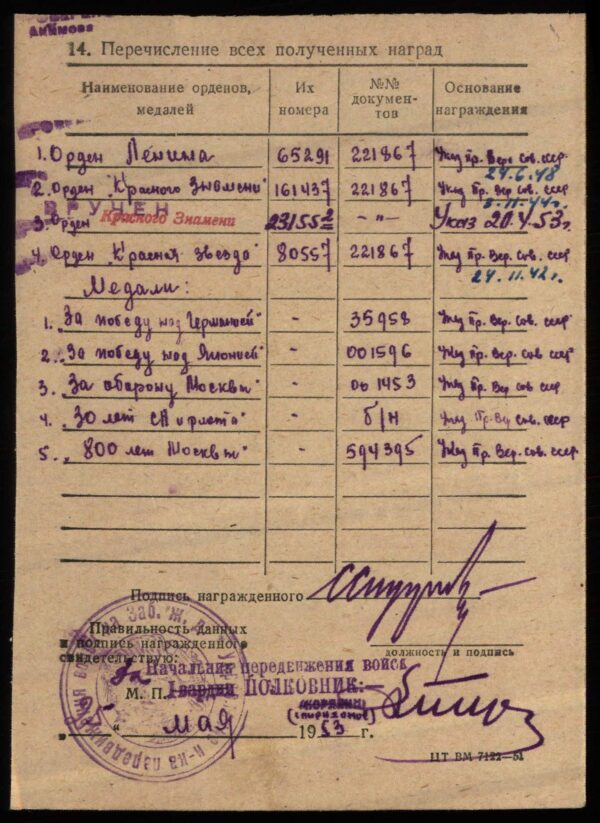 Акимова
14. Перечисление всех полученных наград
Наименование орденов, медалей
Их номера
№№ документов
Основание награждения
1. Орден Ленина 65291 221867 Указ Пр. Верх Сов. ссср
24.6.48
2. Орден "Красного Знамени" 161437 221867 Указ Пр. Вер Сов. ссср
3.11.44г.
ВРУЧЕН
3. Орден Красного Знамени 231552 -"- Указ 20.4.53г.
4. Орден "Красная звезда" 80557 221867 Указ Пр. Вер. Сов. ссср
24.11.42г.
Медали:
1. "За победу над Германией" - 35958 Указ Пр. Вер. Сов. ссср
2. "За победу над Японией" - 001596 Указ Пр. Вер. Сов. ссср
3. "За оборону Москвы" - 001453 Указ Пр. Вер Сов. ссср
4. "30 лет СА и флота" - б/н Указ Пр. Вер Сов. ссср
5. "800 лет Москвы" - 594395 Указ Пр. Вер. Сов. ссср
Подпись награжденного
Правильность данных
и подпись награжденного
свидетельствую:
должность и подпись
За Начальник передвижения войск
М. П. Гвардии ПОЛКОВНИК:
(спиридонов)
" мая 1953 г.
ЦТ ВМ 7122—51